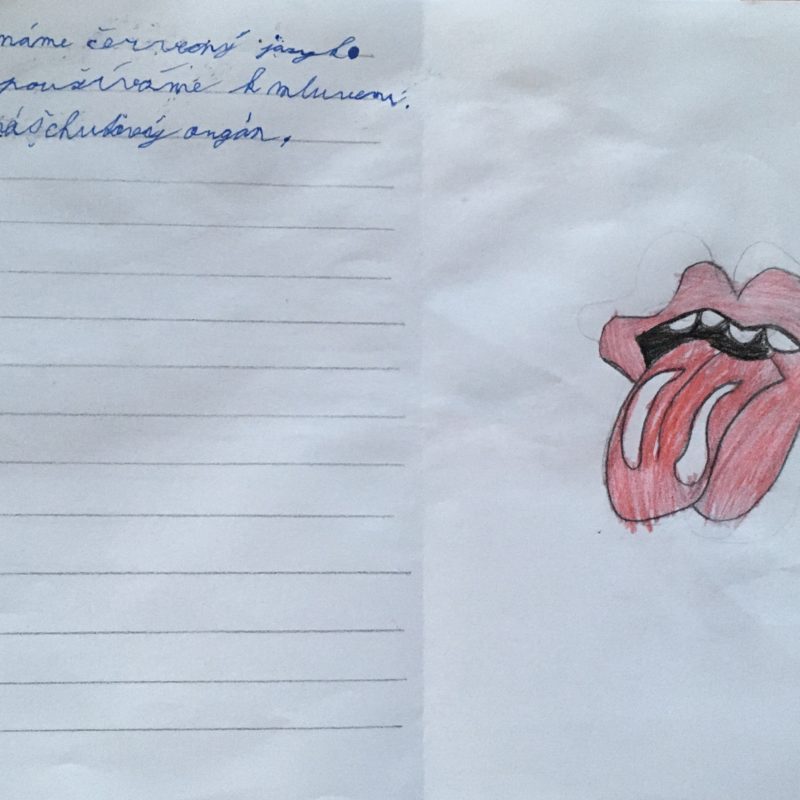 máme červený jazyk.
používáme k mluvení.
náš chuťový orgán.